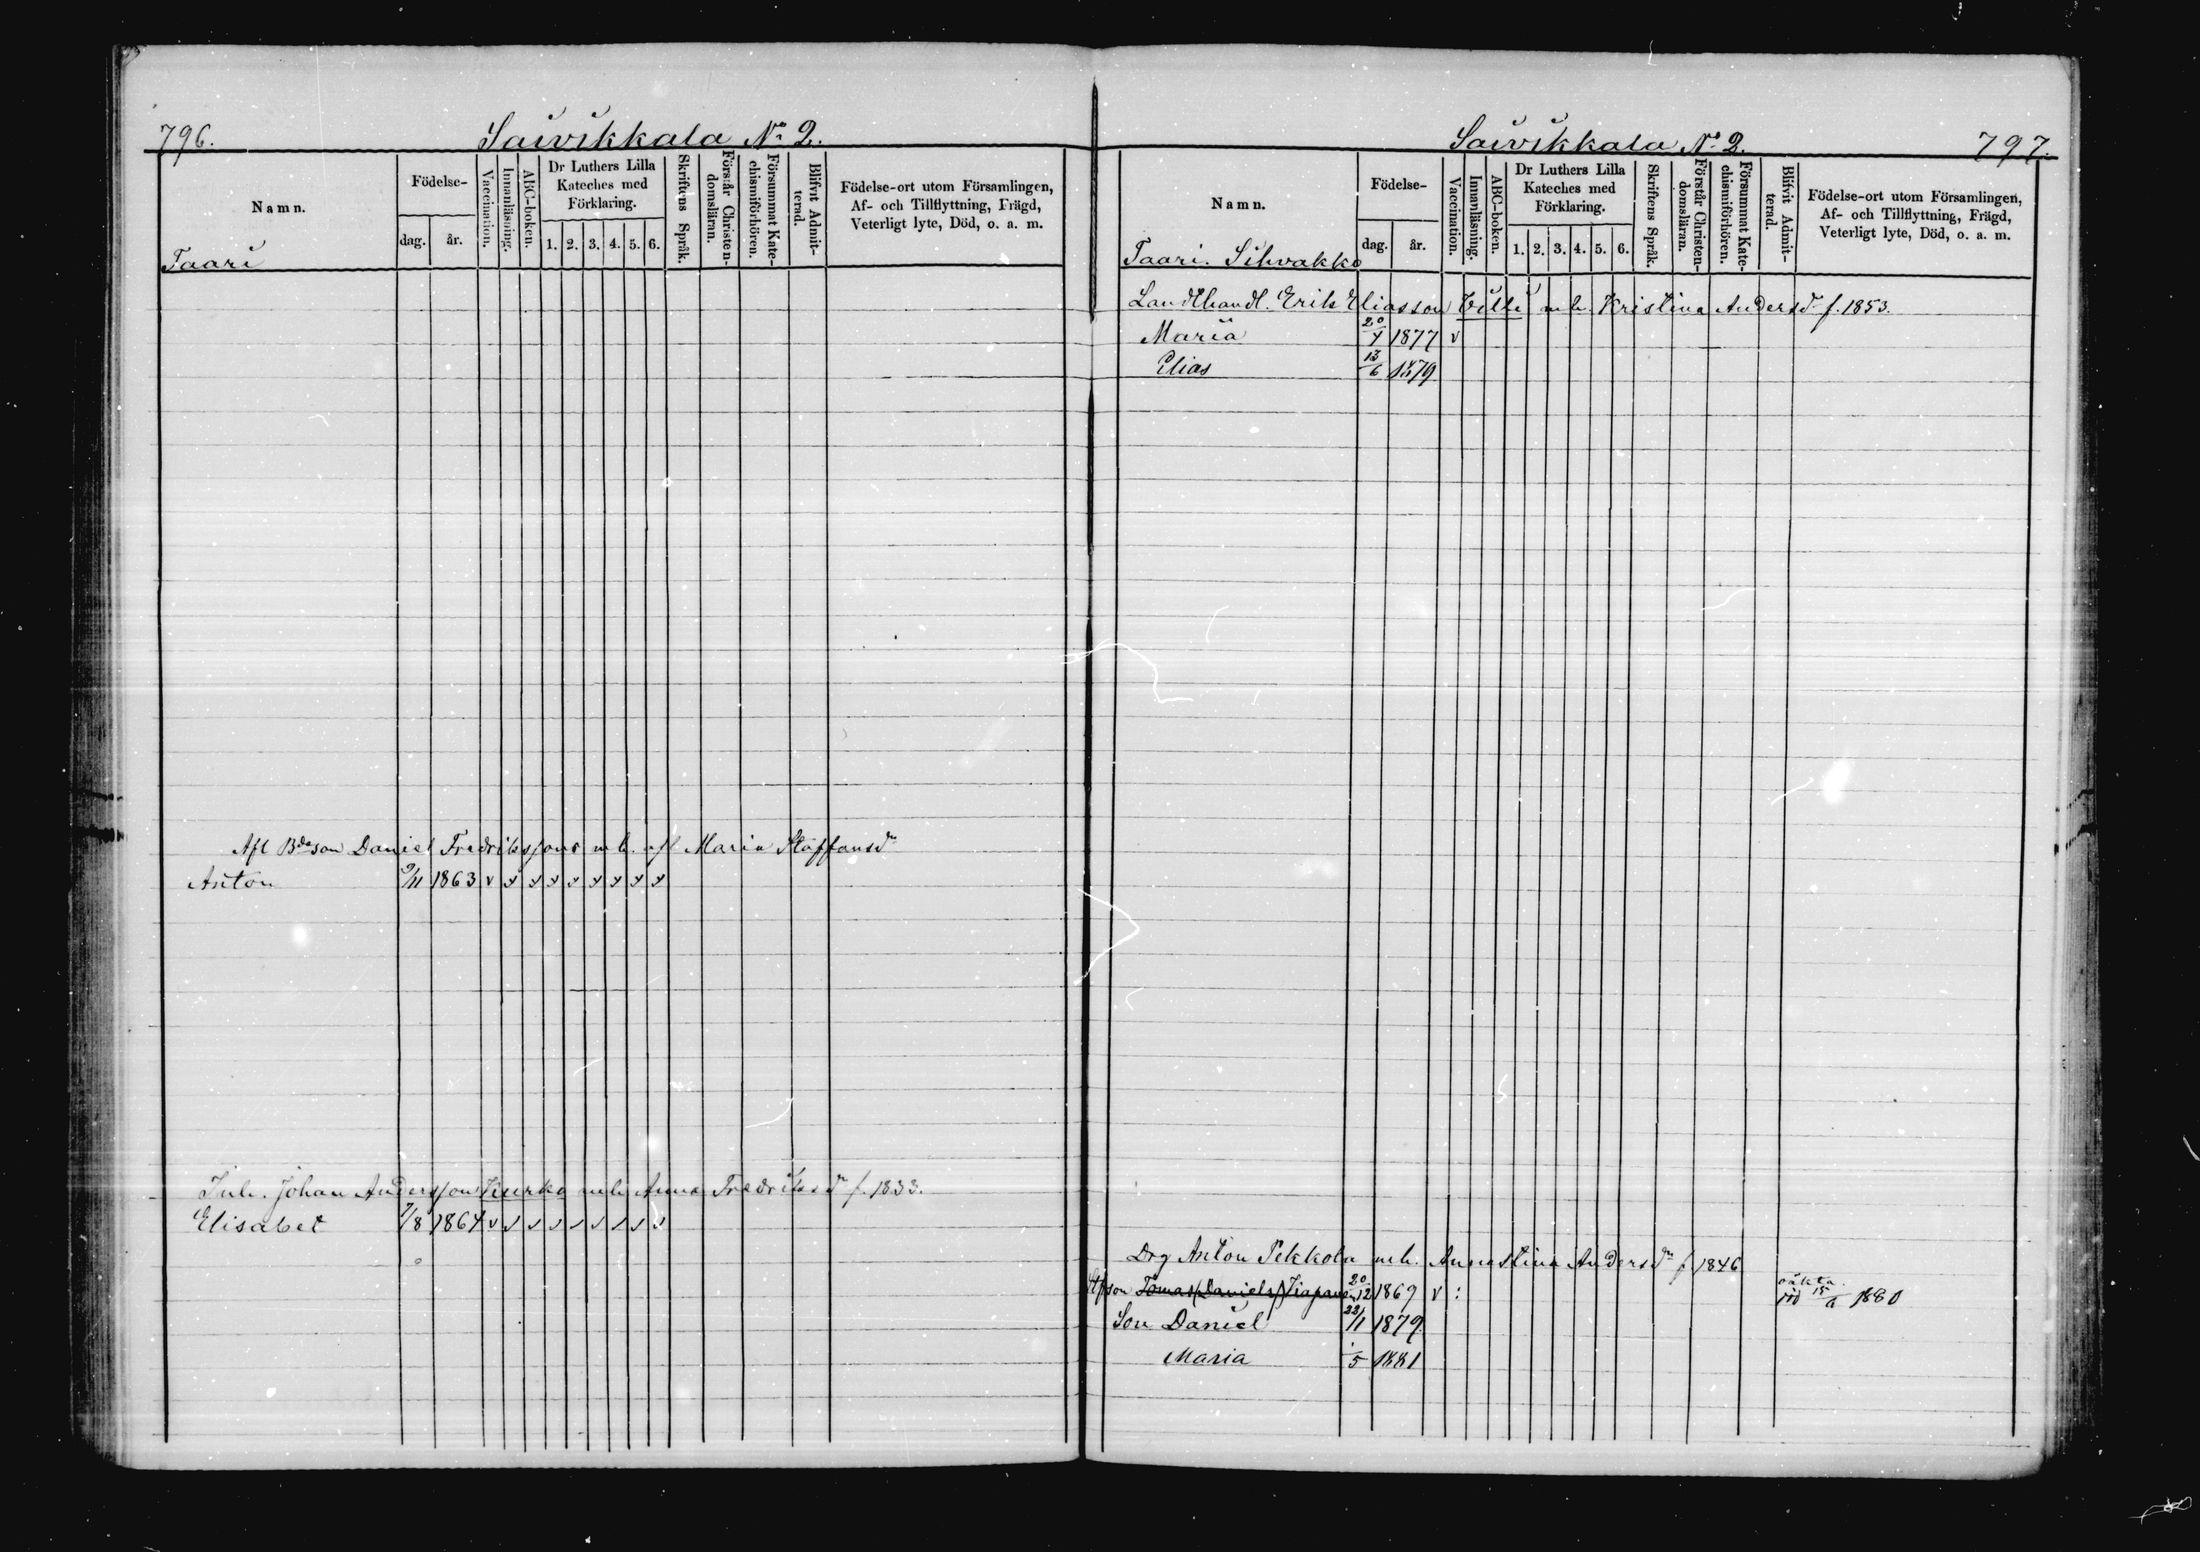 796.
Saivikkala No 2.
Namn.
Födelse-
dag. år.
Vaccination.
Innanläsning.
ABC-boken.
Dr Luthers Lilla Kateches med Förklaring.
1. 2. 3. 4. 5. 6.
Skriftens Språk.
Förstår Christendomsläran.
Försummat Katechismiförhören.
Blifvit Admitterad.
Födelse-ort utom Församlingen, Af- och Tillflyttning, Frägd, Veterligt lyte, Död, o. a. m.
Taari
Afl Bdeson Daniel Fredrikssons m h. afl Maria Staffansdr
Anton 9/11 1863 v v v v v v v v v
Inh. Johan Andersson m h Anna Fredriksdr f. 1833.
Elisabet 7/8 1864 v v v v v v v v v
797.
Saivikkala No 2.
Namn.
Födelse-
dag. år.
Vaccination.
Innanläsning.
ABC-boken.
Dr Luthers Lilla Kateches med Förklaring.
1. 2. 3. 4. 5. 6.
Skriftens Språk.
Förstår Christendomsläran.
Försummat Katechismiförhören.
Blifvit Admitterad.
Födelse-ort utom Församlingen, Af- och Tillflyttning, Frägd, Veterligt lyte, Död, o. a. m.
Taari. Sihvakko
Landthandl. Erik Eliasson Villi m h. Kristina Andersdr f. 1853.
Maria 20/4 1877 v
Elias 13/6 1879
Drg Anton Pekkola m h. Annastina Andersdr f. 1846
Stfson Tomas (Daniels) Tiapanen 20/12 1869 v : oäkta. död 15/6 1880
Son Daniel 22/1 1879
Maria /5 1881